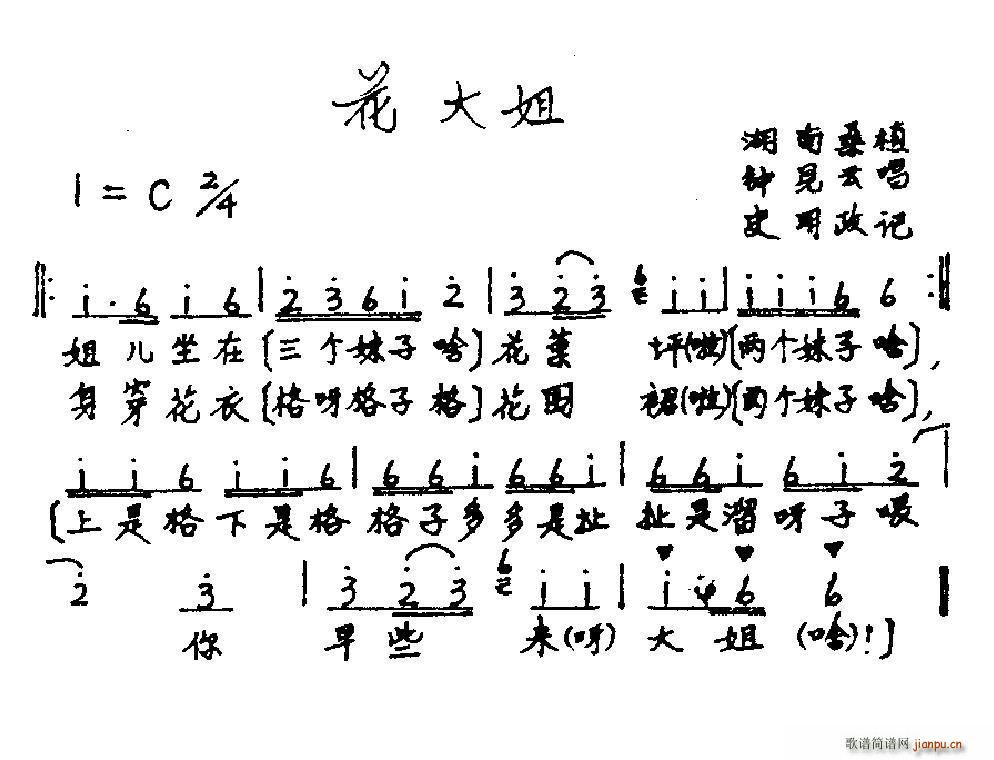 花大姐
湖南桑植
钟昆云唱
史明政记
1 = C 2/4
i·6 i 6 | 2 3 6 i 2 | 3 2 3 6 i i | i i i 6 6
姐儿坐在[三个妹子啥]花葉 坪(啦)[两个妹子啥],
身穿花衣[格呀格子格]花围 裙(啦)[两个妹子啥],
i i 6 i i 6 | 6 6 i 6 6 i | 6 6 i 6 i 2
[上是格下是格格子多多是扯扯是溜呀子喂
2 3 | 3 2 3 6 i i | i i 6 6
你 早些 来(呀)大姐(啥)!]
歌谱简谱网 jianpu.cn